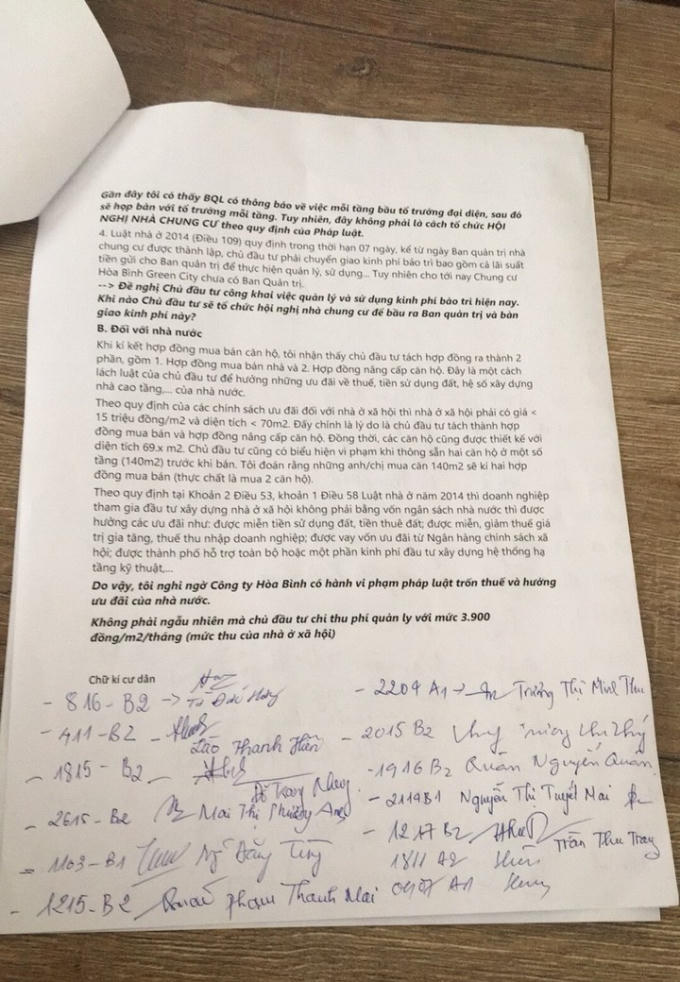 Gần đây tôi có thấy BQL có thông báo về việc mỗi tầng bầu tổ trưởng đại diện, sau đó
sẽ họp bàn với tổ trưởng mỗi tầng. Tuy nhiên, đây không phải là cách tổ chức HỘI
NGHỊ NHÀ CHUNG CƯ theo quy định của Pháp luật.
4. Luật nhà ở 2014 (Điều 109) quy định trong thời hạn 07 ngày, kể từ ngày Ban quản trị nhà
chung cư được thành lập, chủ đầu tư phải chuyển giao kinh phí bảo trì bao gồm cả lãi suất
tiền gửi cho Ban quản trị để thực hiện quản lý, sử dụng... Tuy nhiên cho tới nay Chung cư
Hòa Bình Green City chưa có Ban Quản trị.
--> Đề nghị Chủ đầu tư công khai việc quản lý và sử dụng kinh phí bảo trì hiện nay.
Khi nào Chủ đầu tư sẽ tổ chức hội nghị nhà chung cư để bầu ra Ban quản trị và bàn
giao kinh phí này?
B. Đối với nhà nước
Khi kí kết hợp đồng mua bán căn hộ, tôi nhận thấy chủ đầu tư tách hợp đồng ra thành 2
phần, gồm 1. Hợp đồng mua bán nhà và 2. Hợp đồng nâng cấp căn hộ. Đây là một cách
lách luật của chủ đầu tư để hưởng những ưu đãi về thuế, tiền sử dụng đất, hệ số xây dựng
nhà cao tầng,... của nhà nước.
Theo quy định của các chính sách ưu đãi đối với nhà ở xã hội thì nhà ở xã hội phải có giá <
15 triệu đồng/m2 và diện tích < 70m2. Đấy chính là lý do là chủ đầu tư tách thành hợp
đồng mua bán và hợp đồng nâng cấp căn hộ. Đồng thời, các căn hộ cũng được thiết kế với
diện tích 69.x m2. Chủ đầu tư cũng có biểu hiện vi phạm khi thông sẵn hai căn hộ ở một số
tầng (140m2) trước khi bán. Tôi đoán rằng những anh/chị mua căn 140m2 sẽ kí hai hợp
đồng mua bán (thực chất là mua 2 căn hộ).
Theo quy định tại Khoản 2 Điều 53, khoản 1 Điều 58 Luật nhà ở năm 2014 thì doanh nghiệp
tham gia đầu tư xây dựng nhà ở xã hội không phải bằng vốn ngân sách nhà nước thì được
hưởng các ưu đãi như: được miễn tiền sử dụng đất, tiền thuê đất; được miễn, giảm thuế giá
trị gia tăng, thuế thu nhập doanh nghiệp; được vay vốn ưu đãi từ Ngân hàng chính sách xã
hội; được thành phố hỗ trợ toàn bộ hoặc một phần kinh phí đầu tư xây dựng hệ thống hạ
tầng kỹ thuật,...
Do vậy, tôi nghi ngờ Công ty Hòa Bình có hành vi phạm pháp luật trốn thuế và hưởng
ưu đãi của nhà nước.
Không phải ngẫu nhiên mà chủ đầu tư chỉ thu phí quản lý với mức 3.900
đồng/m2/tháng (mức thu của nhà ở xã hội)
Chữ kí cư dân
- 816-B2 ->
- 411-B2 - Thanh Hiền
- 1815 - B2 -
- 2615-B2 Mai Thị Phương Anh
- 1103-B1
- 1215-B2 Phạm Thanh Mai
- 2204 A1 -> Trương Thị Minh Thu
- 2015 B2
- 1916 B2 Quân Nguyễn Quân
- 2114B1 Nguyễn Thị Tuyết Mai
- 1217 B2 Trần Thu Trang
1811 A2 Hiền
0907 A1